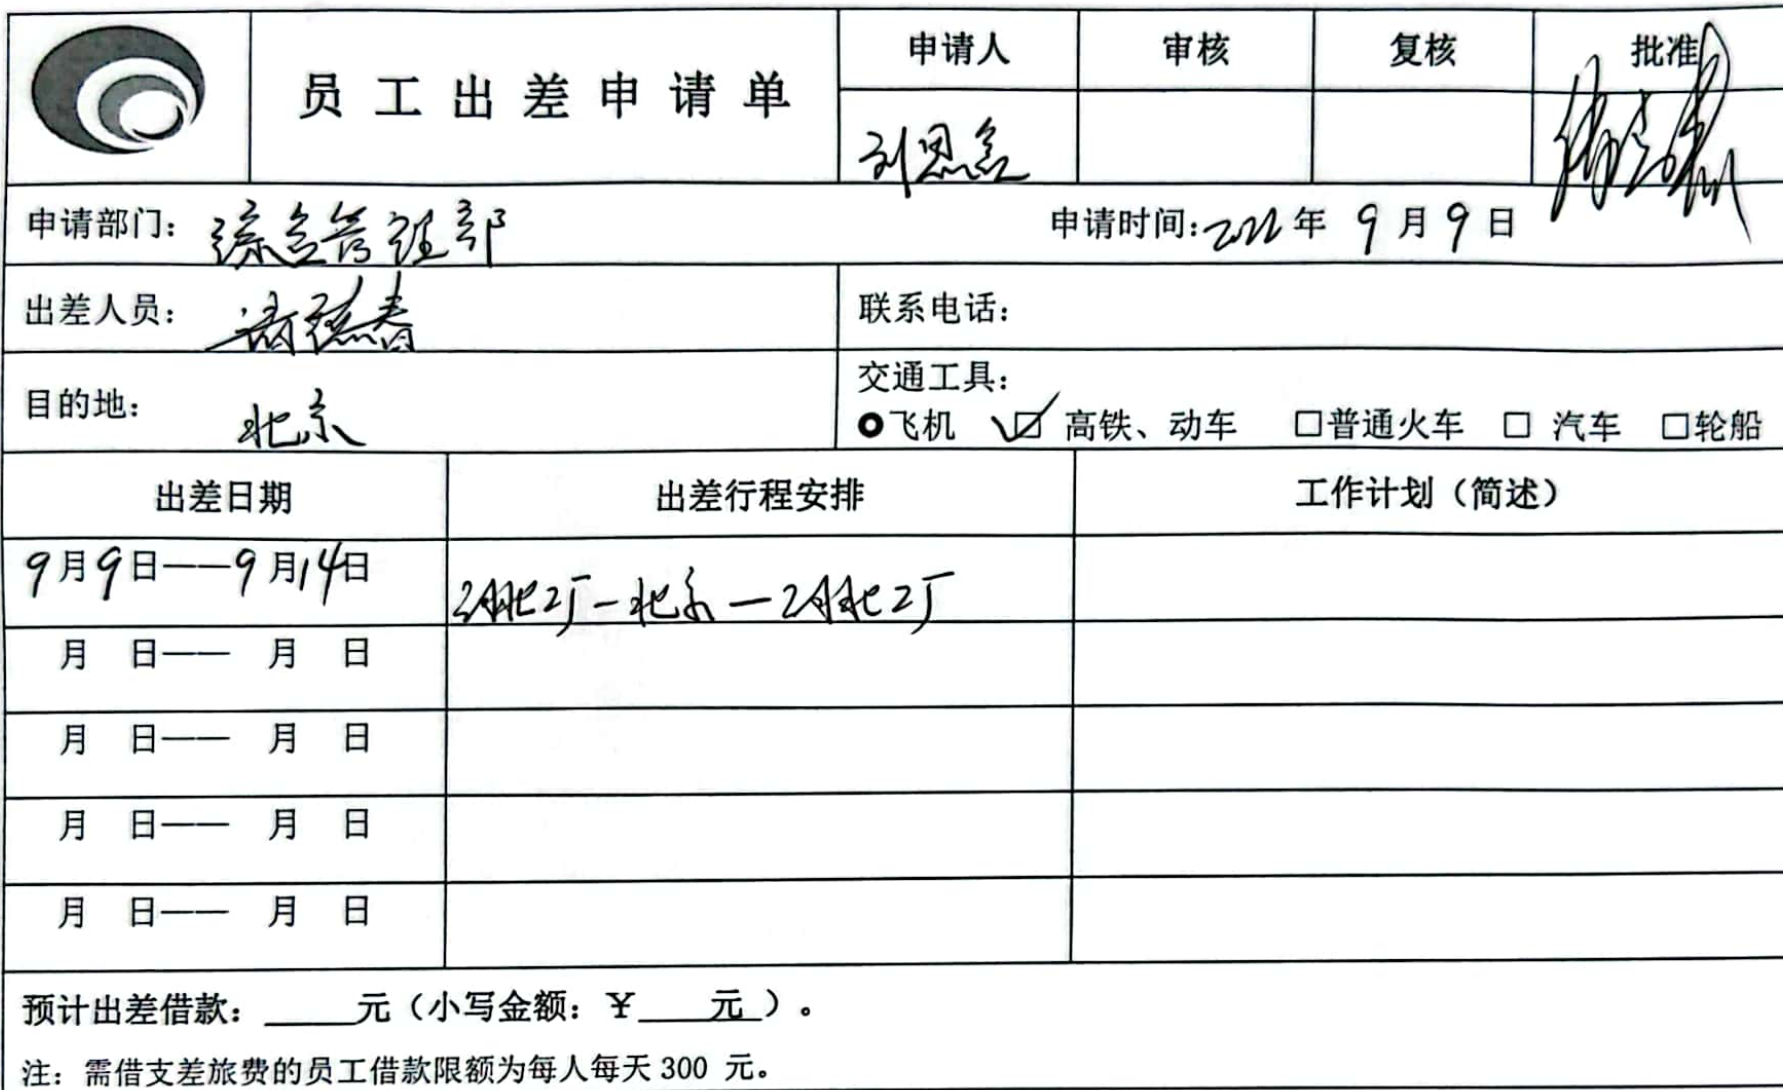 员工出差申请单
申请人 审核 复核 批准
刘思念
申请部门：综合管理部 申请时间：2022年9月9日
出差人员：谢德春 联系电话：
目的地：北京 交通工具：
飞机 ☑高铁、动车 □普通火车 □ 汽车 □轮船
出差日期 出差行程安排 工作计划（简述）
9月9日——9月14日 北工厂—北京—北工厂
月 日—— 月 日
月 日—— 月 日
月 日—— 月 日
月 日—— 月 日
预计出差借款：_____元（小写金额：￥____元）。
注：需借支差旅费的员工借款限额为每人每天300 元。